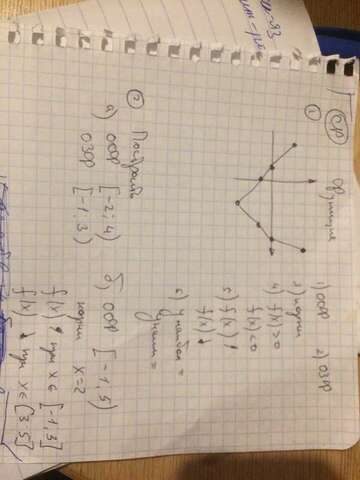 СР
Функция
①
1) ООФ 2) ОЗФ
3) корни
4) f(x)>0
f(x)<0
5) f(x)↑
f(x)↓
6) y наибол =
y наим =
② Построить
а) ООФ [-2; 4)
ОЗФ [-1, 3)
б) ООФ [-1, 5)
корни x=2
f(x)↑ при x∈[-1,3]
f(x)↓ при x∈[3,5]